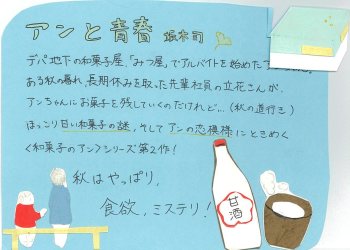 アンと青春 坂木司
デパ地下の和菓子屋、「みつ屋」でアルバイトを始めた
ある秋の暮れ、長期休みを取った先輩社員の立花さんが、
アンちゃんにお菓子を残していくのだけれど…(秋の道行き)
ほっこり甘い和菓子の謎、そしてアンの恋模様にときめく
〈和菓子のアン〉シリーズ第2作!
秋はやっぱり、
食欲、ミステリ!
甘酒